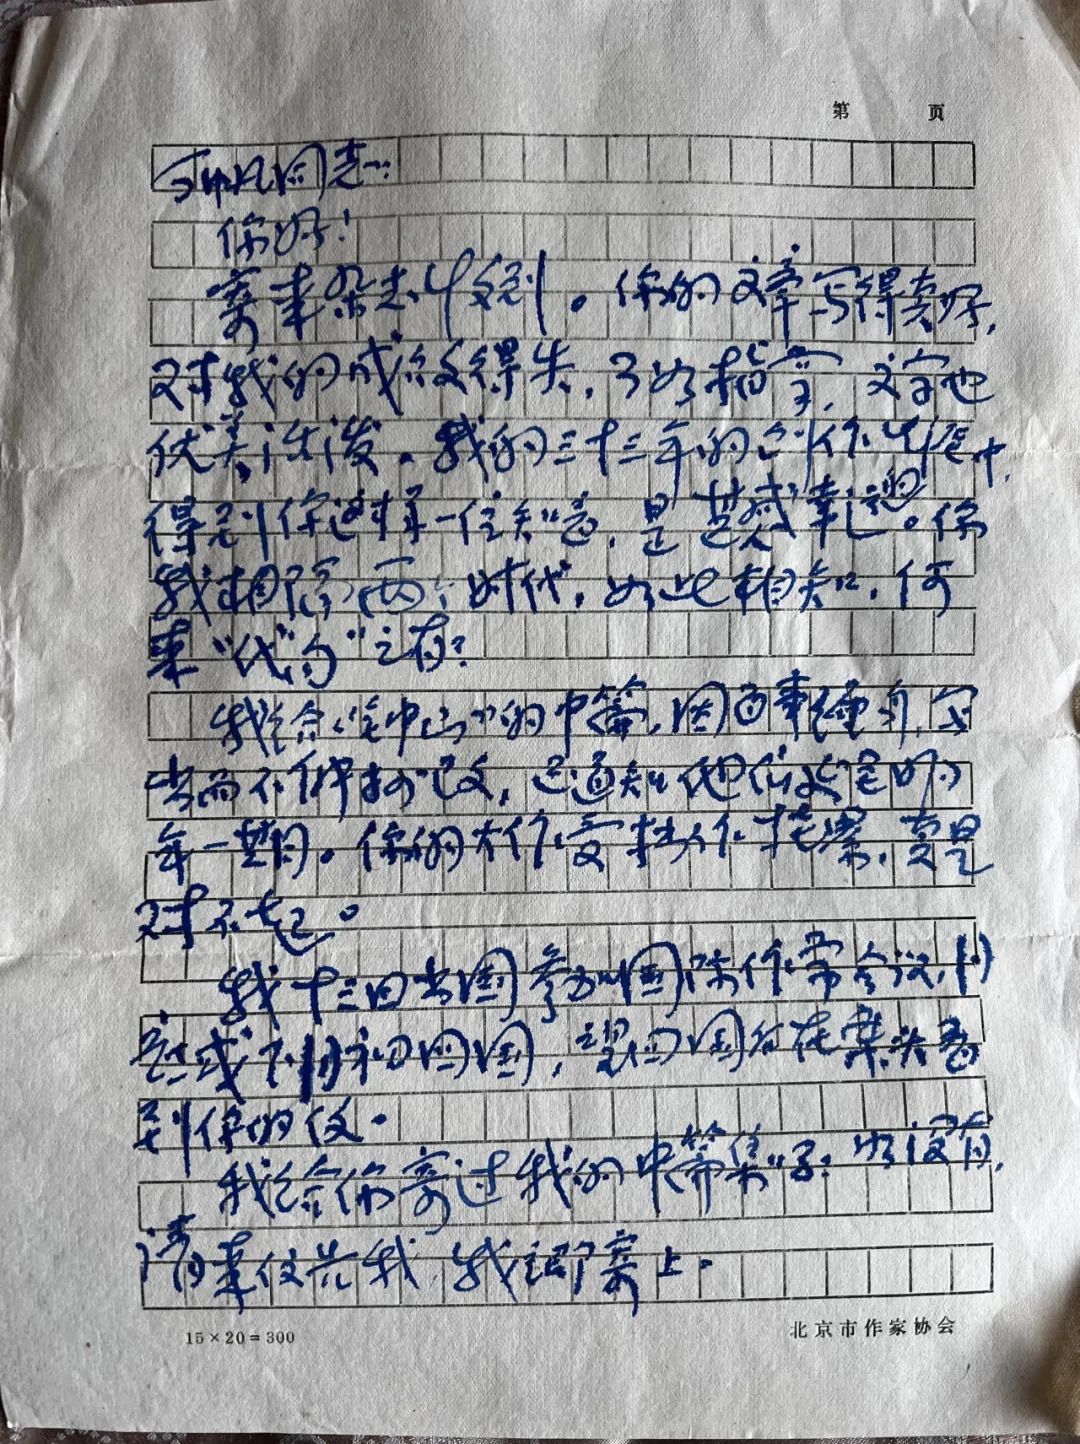 第 页
同志:
你好!
寄来杂志收到。你的文章写得真好,
对我的成败得失,了如指掌,文字也
优美活泼。我的三十三年的创作生涯中,
得到你这样一位知音,是楚感幸运。你
我相隔两个时代,如此相知,何
来“代沟”之有?
我给《钟山》的中篇,因百事缠身,写
出而不伸动改,已通知他们改定明
年一期。你的大作受拙作拖累,真是
对不起。
我十三日出国参加国际作家会议,月
底或下月初回国,望回国后在案头看
到你的信。
我给你寄过我的中篇集子?如没有,
请来信告我,我立即寄上。
15×20=300
北京市作家协会